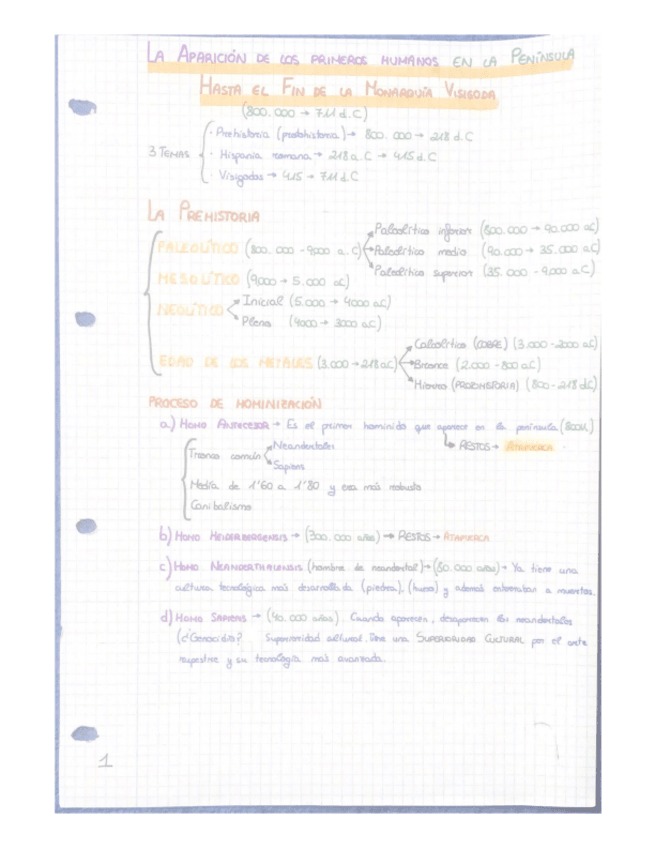 LA APARICIÓN DE LOS PRIMEROS HUMANOS EN LA PENÍNSULA
HASTA EL FIN DE LA MONARQUÍA VISIGODA
(800.000 → 711 d.C)
3 TEMAS
· Prehistoria (protohistoria) → 800.000 → 218 d.C
· Hispania romana → 218 a.C → 415 d.C
· Visigodos → 415 → 711 d.C
LA PREHISTORIA
PALEOLÍTICO (800.000 - 9000 a.C)
Paleolítico inferior (800.000 → 90.000 aC)
Paleolítico medio (90.000 → 35.000 aC)
Paleolítico superior (35.000 - 9.000 aC)
MESOLÍTICO (9000 → 5.000 aC)
NEOLÍTICO
Inicial (5.000 → 4000 aC)
Pleno (4000 → 3000 aC)
EDAD DE LOS METALES (3.000 → 218 aC)
Calcolítico (COBRE) (3.000 - 2000 aC)
Bronce (2.000 - 800 aC)
Hierro (PROTOHISTORIA) (800 - 218 dC)
PROCESO DE HOMINIZACIÓN
a) HOMO ANTECESOR → Es el primer homínido que aparece en la península
↳ RESTOS → ATAPUERCA
Tronco común
Neandertales
Sapiens
Medía de 1'60 a 1'80 y era más robusto
Canibalismo
b) HOMO HEIDELBERGENSIS → (300.000 años) → RESTOS → ATAPUERCA
c) HOMO NEANDERTHALENSIS (hombre de neandertal) → (80.000 años) → Ya tiene una
cultura tecnológica más desarrollada (piedra), (hueso) y además enterraban a muertos.
d) HOMO SAPIENS → (40.000 años). Cuando aparecen, desaparecen los neandertales
(¿Genocidio? Superioridad cultural. Tiene una SUPERIORIDAD CULTURAL por el arte
rupestre y su tecnología más avanzada.
1